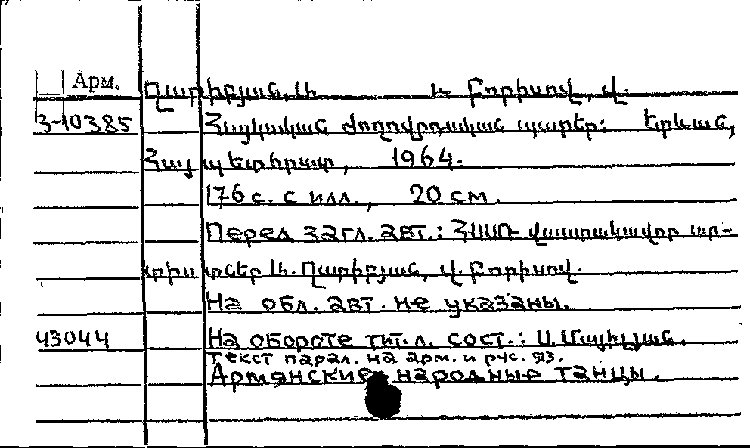 Арм. Ղարիբյան, Ի. և Բորիսով, Վ.
3-10385 Հայկական ժողովրդական պարեր: Երևան,
Հայպետհրատ, 1964.
176 с. с илл., 20 см.
Перед загл. авт.: ՀՍՍՌ վաստակավոր ար-
տիստներ Ի. Ղարիբյան, Վ. Բորիսով.
На обл. авт. не указаны.
43044 На обороте тит. л. сост.: Ա. Մայիլյան.
Текст парал. на арм. и рус. яз.
Армянские народные танцы.